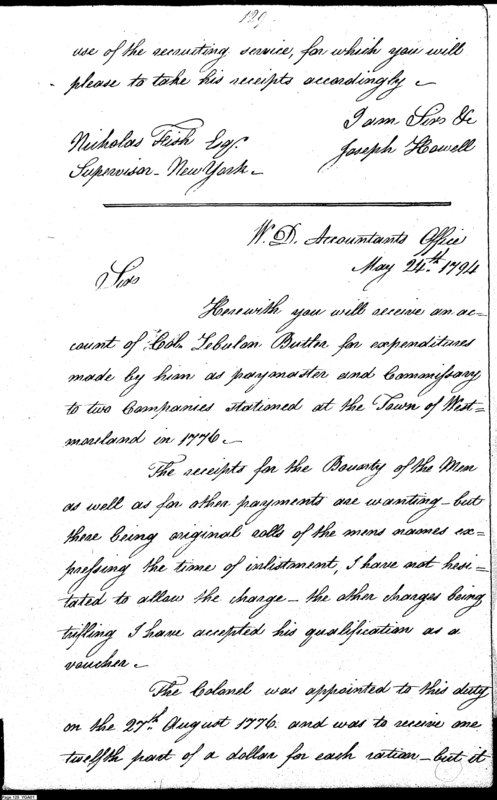 129
use of the recruiting service, for which you will
please to take his receipts accordingly –
I am Sir &c
Joseph Howell
Nicholas Fish Esqr.
Supervisor – New York –
W. D. Accountants Office
May 24th. 1794
Sir
Herewith you will receive an ac=
count of Col. Zebulon Butler for expenditures
made by him as paymaster and Commissary
to two Companies stationed at the Town of West=
moreland in 1776 –
The receipts for the Bounty of the Men
as well as for other payments are wanting – but
there being original rolls of the mens names ex=
pressing the time of inlistment, I have not hesi=
tated to allow the charge – the other charges being
trifling I have accepted his qualification as a
voucher –
The Colonel was appointed to this duty
on the 27th. August 1776. and was to receive one
twelfth part of a dollar for each ration – but it